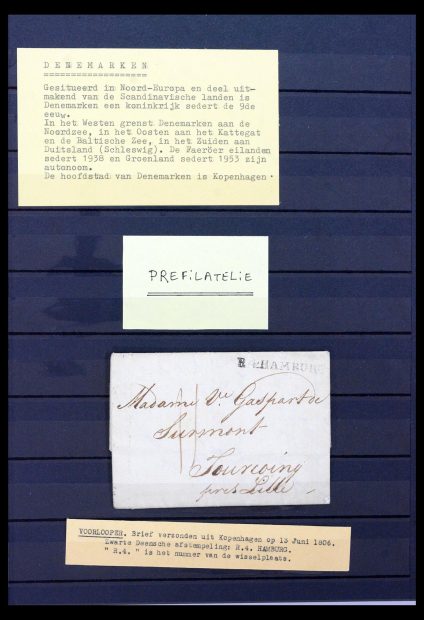 D E N E M A R K E N
===================
Gesitueerd in Noord-Europa en deel uit-
makend van de Scandinavische landen is
Denemarken een koninkrijk sedert de 9de
eeuw.
In het Westen grenst Denemarken aan de
Noordzee, in het Oosten aan het Kattegat
en de Baltische Zee, in het Zuiden aan
Duitsland (Schleswig). De Faeröer eilanden
sedert 1938 en Groenland sedert 1953 zijn
autonoom.
De hoofdstad van Denemarken is Kopenhagen.
PREFILATELIE
HAMBURG
Madame Ve Gaspart de
Surmont
Tourcoing
pres Lille
VOORLOPER. Brief verzonden uit Kopenhagen op 13 Juni 1806.
Zwarte Deensche afstempeling: R.4. HAMBURG.
" R.4. " is het nummer van de wisselplaats.